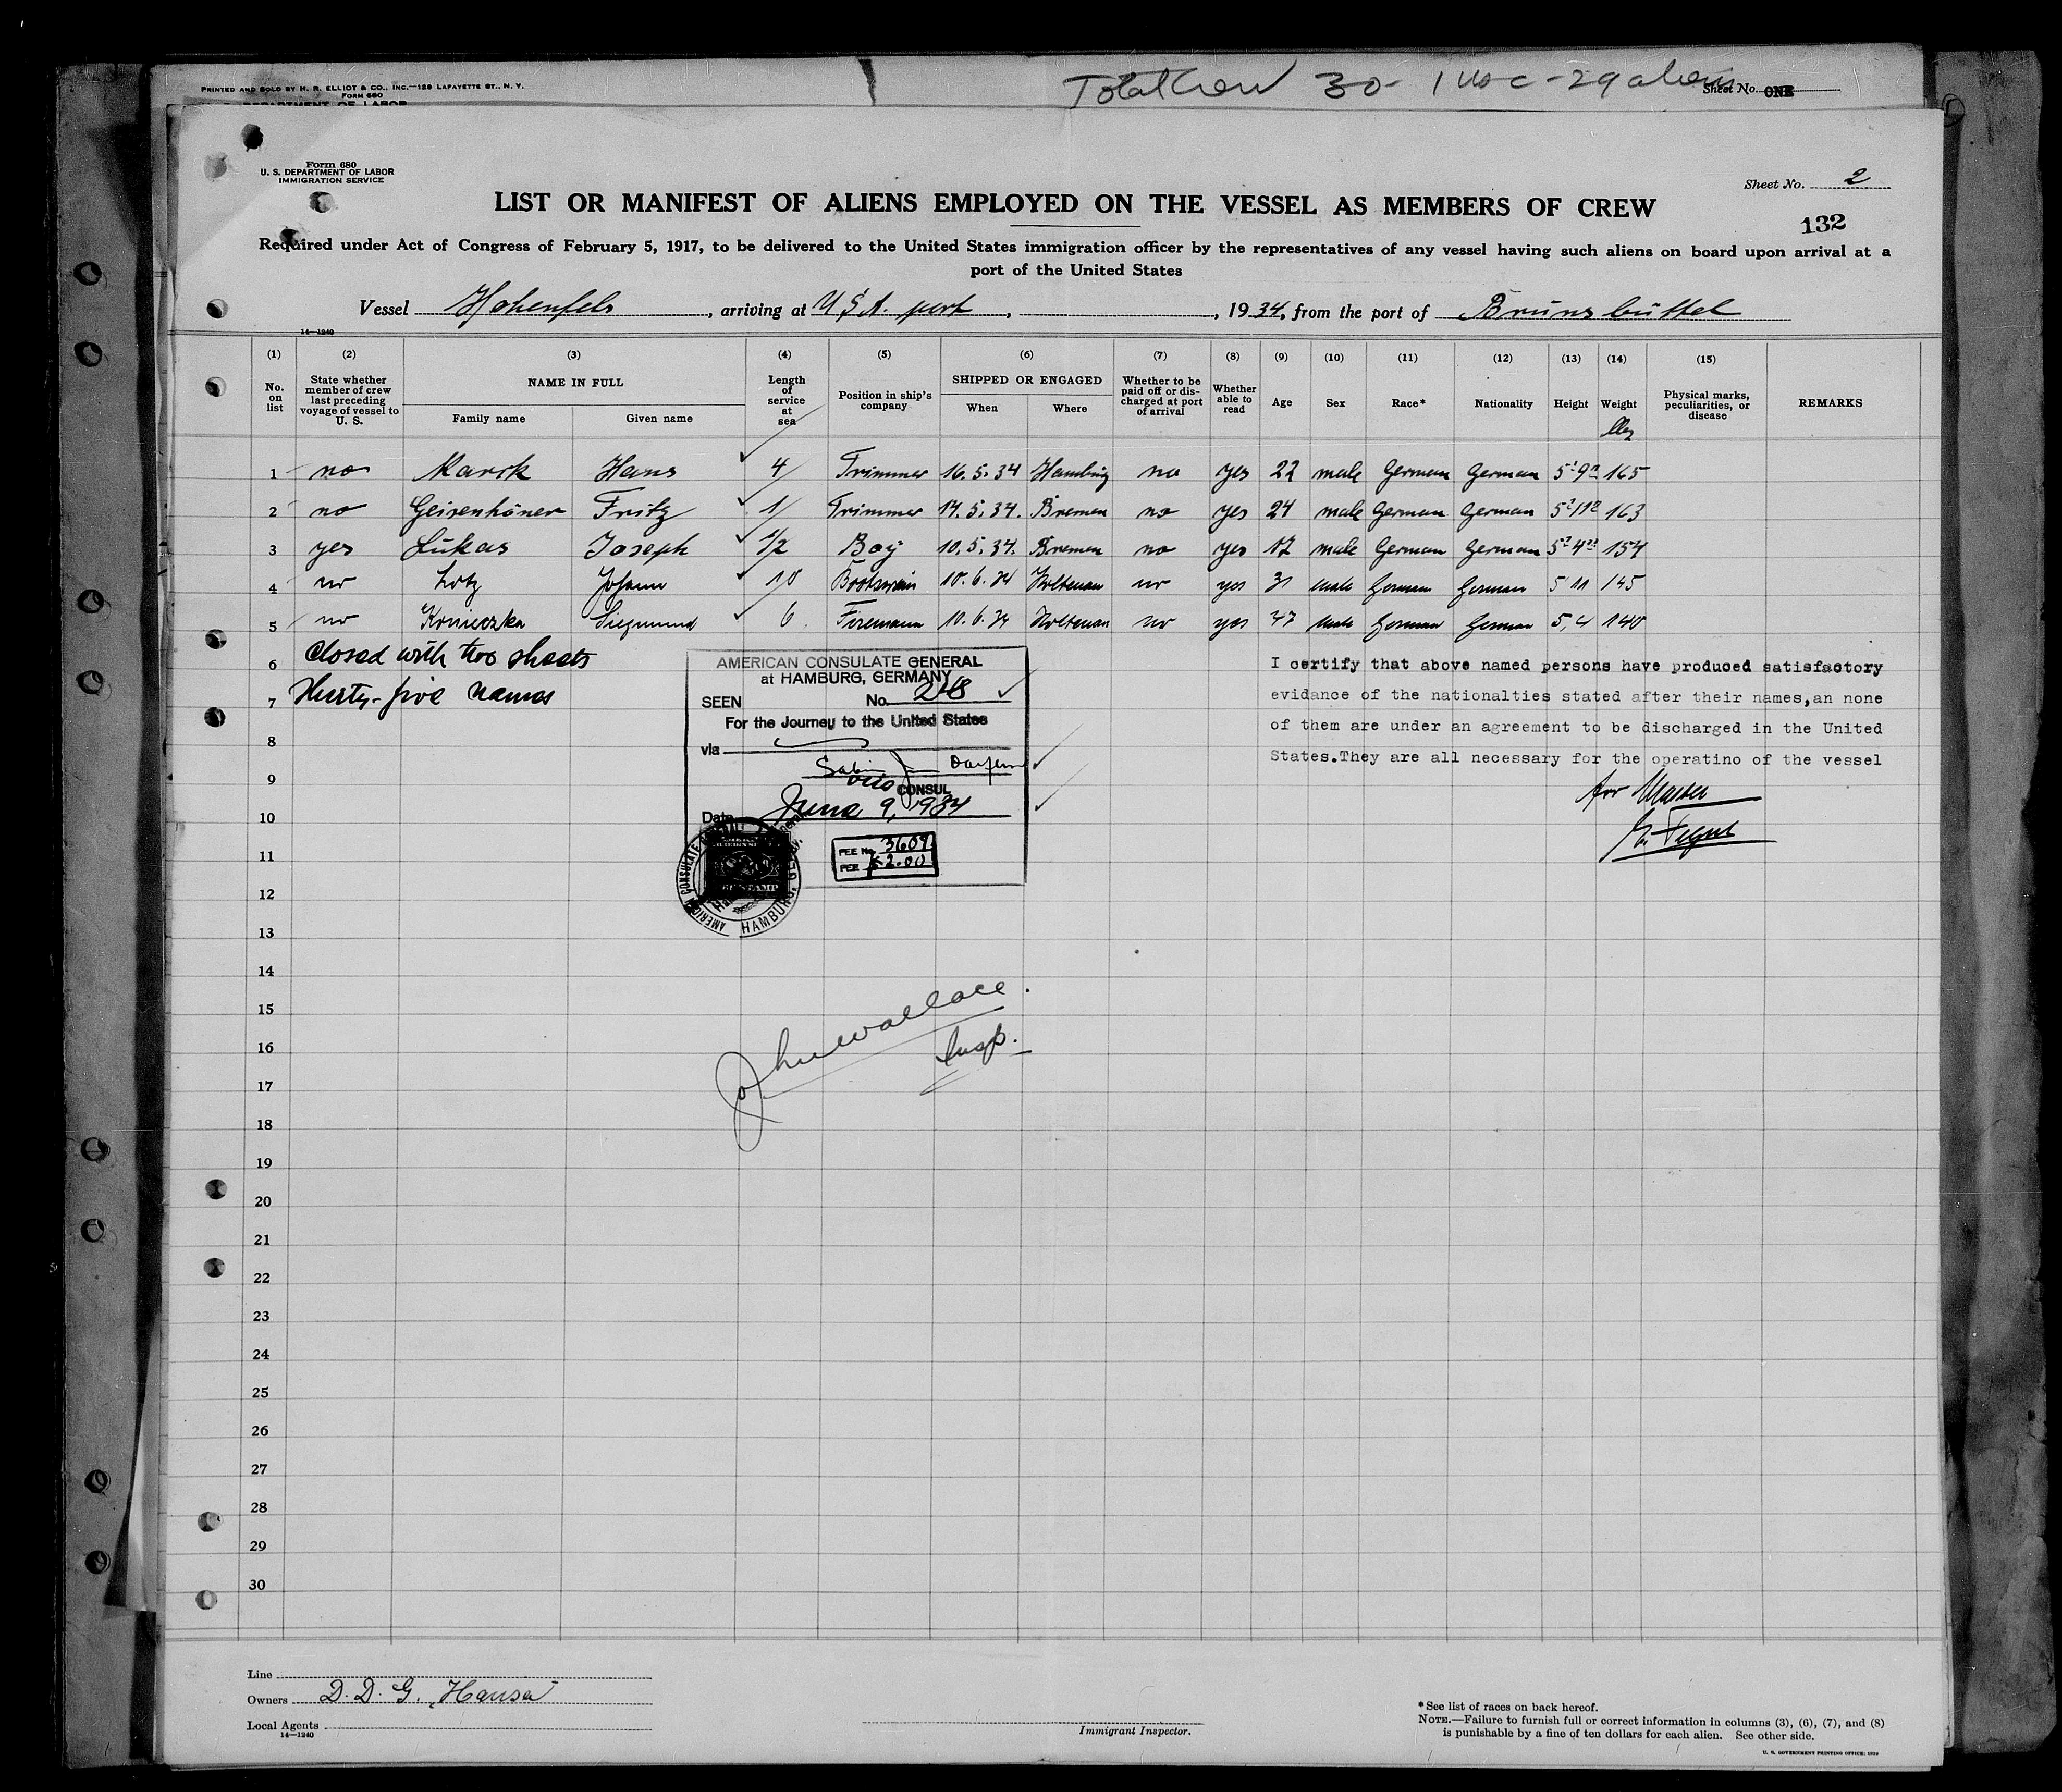 PRINTED AND SOLD BY H. R. ELLIOT & CO., INC.—129 LAFAYETTE ST., N. Y.
FORM 680
U. S. DEPARTMENT OF LABOR
Total Crew 30 - 1 USC - 29 aliens
Sheet No. ONE
Form 680
U. S. DEPARTMENT OF LABOR
IMMIGRATION SERVICE
Sheet No. 2
LIST OR MANIFEST OF ALIENS EMPLOYED ON THE VESSEL AS MEMBERS OF CREW
132
Required under Act of Congress of February 5, 1917, to be delivered to the United States immigration officer by the representatives of any vessel having such aliens on board upon arrival at a
port of the United States
Vessel Hohenfels, arriving at U.S.A. port, , 1934, from the port of Brunsbüttel
14—1240
(1) (2) (3) (4) (5) (6) (7) (8) (9) (10) (11) (12) (13) (14) (15)
No. on list State whether member of crew last preceding voyage of vessel to U. S. NAME IN FULL Family name Given name Length of service at sea Position in ship's company SHIPPED OR ENGAGED When Where Whether to be paid off or discharged at port of arrival Whether able to read Age Sex Race* Nationality Height Weight Physical marks, peculiarities, or disease REMARKS
1 no Marck Hans 4 Trimmer 16.5.34 Hamburg no yes 22 male German German 5'9" 165
2 no Geisenhöner Fritz 1 Trimmer 17.5.34. Bremen no yes 24 male German German 5'11" 163
3 yes Lukas Joseph 1/2 Boy 10.5.34. Bremen no yes 17 male German German 5'4" 154
4 no Lotz Johann 10 Bootswain 10.6.34 Holtenau no yes 31 male German German 5 11 145
5 no Konieczka Siegmund 6 Firemann 10.6.34 Holtenau no yes 47 male German German 5,4 140
6 Closed with two sheets
7 thirty-five names
8
9
10
11
12
13
14
15
16
17
18
19
20
21
22
23
24
25
26
27
28
29
30
AMERICAN CONSULATE GENERAL
at HAMBURG, GERMANY
SEEN No. 248
For the Journey to the United States
via
Vice CONSUL
Date June 9, 1934
FEE No. 3609
FEE $2.00
AMERICAN CONSULATE GENERAL HAMBURG, GERMANY
I certify that above named persons have produced satisfactory
evidence of the nationalties stated after their names,an none
of them are under an agreement to be discharged in the United
States.They are all necessary for the operatino of the vessel
for Master
John Wallace.
Insp.
Line
Owners D. D. G. "Hansa"
Local Agents
14—1240
Immigrant Inspector.
*See list of races on back hereof.
NOTE.—Failure to furnish full or correct information in columns (3), (6), (7), and (8)
is punishable by a fine of ten dollars for each alien. See other side.
U. S. GOVERNMENT PRINTING OFFICE: 1929